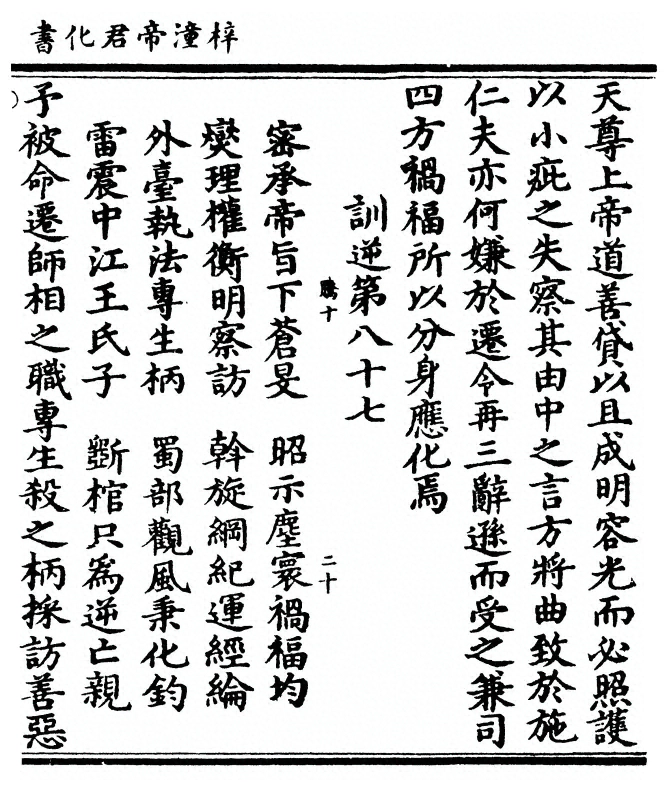 梓潼帝君化書
天尊上帝道善貸以且成明容光而必照護
以小疵之失察其由中之言方將曲致於施
仁夫亦何嫌於遷令再三辭遜而受之兼司
四方禍福所以分身應化焉
訓逆第八十七
騰十
二十
密承帝旨下蒼旻 昭示塵寰禍福均
燮理權衡明察訪 斡旋綱紀運經綸
外臺執法專生柄 蜀部觀風秉化鈞
雷震中江王氏子 斲棺只為逆亡親
予被命遷師相之職專生殺之柄採訪善惡